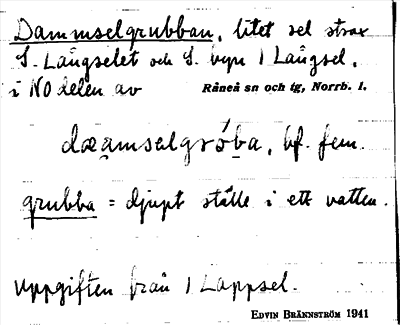 Dammselgrubban, litet sel strax
S. Långselet och S. byn 1 Långsel,
i NO delen av Råneå sn och tg, Norrb. l.
dæamselgróba, bf. fem.
grubba = djupt ställe i ett vatten.
Uppgiften från 1 Lappsel.
EDVIN BRÄNNSTRÖM 1941